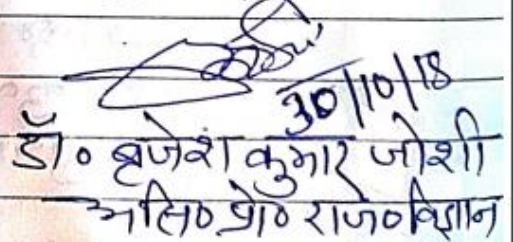 30/10/18
डॉ० बृजेश कुमार जोशी
असि० प्रो० राज० विज्ञान